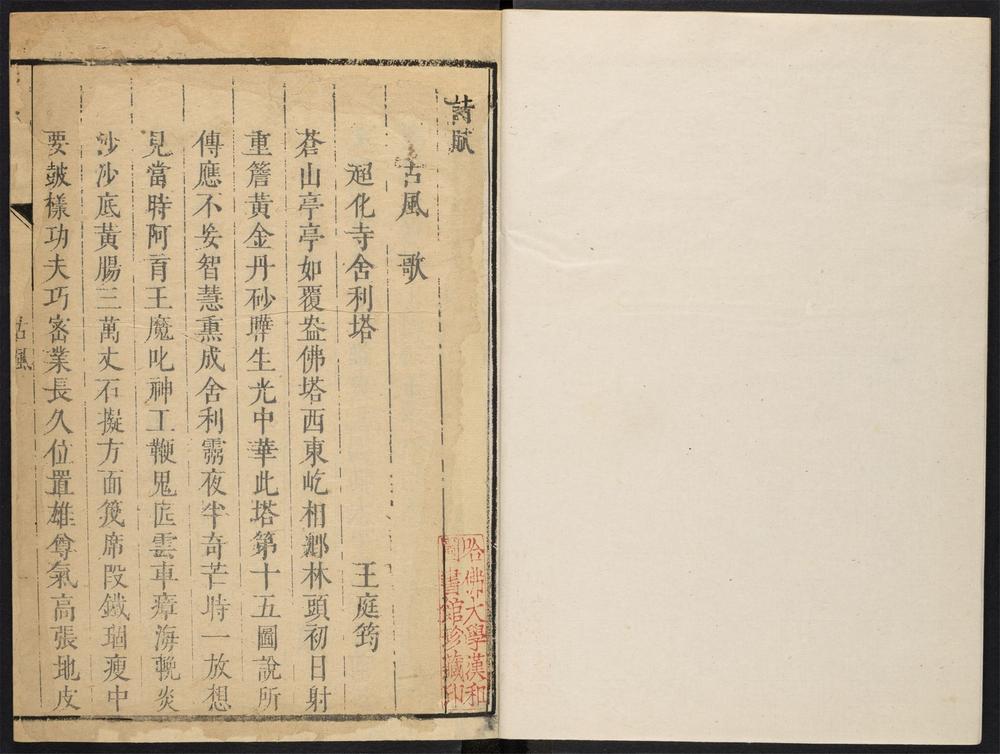 詩賦
古風 歌
超化寺舍利塔 王庭筠
蒼山亭亭如覆盎佛塔西東屹相鄉林頭初日射
重簷黃金丹砂曄生光中華此塔第十五圖說所
傳應不妄智慧熏成舍利靈夜半奇芒時一放想
見當時阿育王魔叱神工鞭鬼匠雲車瘴海輓炎
沙沙底黃腸三萬丈石擬方面筏席段鐵瘦中
要皷樣功夫巧密業長久位置雄尊氣高張地皮
古風
哈佛大學漢和
圖書館珍藏印